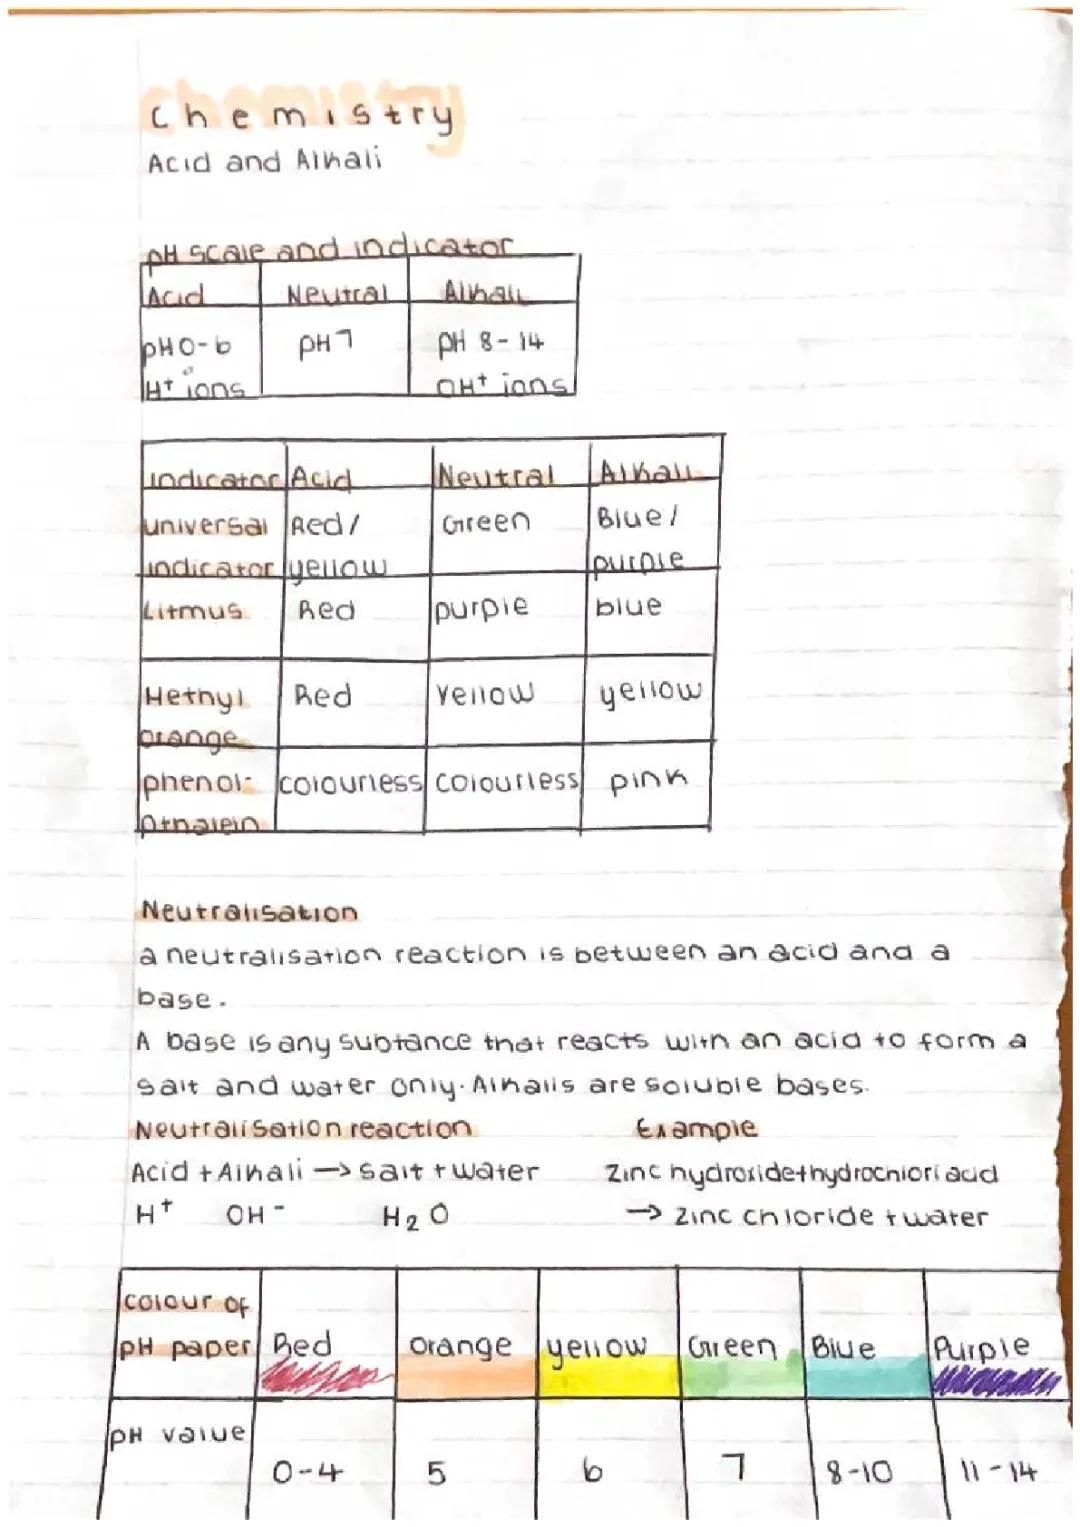 Chemistry
Acid and Alkali
pH scale and indicator
Acid Neutral Alkali
pH 0-6 pH 7 pH 8-14
H+ ions OH+ ions
indicator Acid Neutral Alkali
universal Red/ Green Blue/
indicator yellow purple
Litmus Red purple blue
Methyl Red Yellow yellow
orange
phenol- colourless colourless pink
pthalein
Neutralisation
a neutralisation reaction is between an acid and a
base.
A base is any subtance that reacts with an acid to form a
salt and water only. Alkalis are soluble bases.
Neutralisation reaction Example
Acid + Alkali → salt + water Zinc hydroxide + hydrochlori acid
H+ OH- H2O → zinc chloride + water
colour of
pH paper Red orange yellow Green Blue Purple
pH value
0-4 5 6 7 8-10 11-14